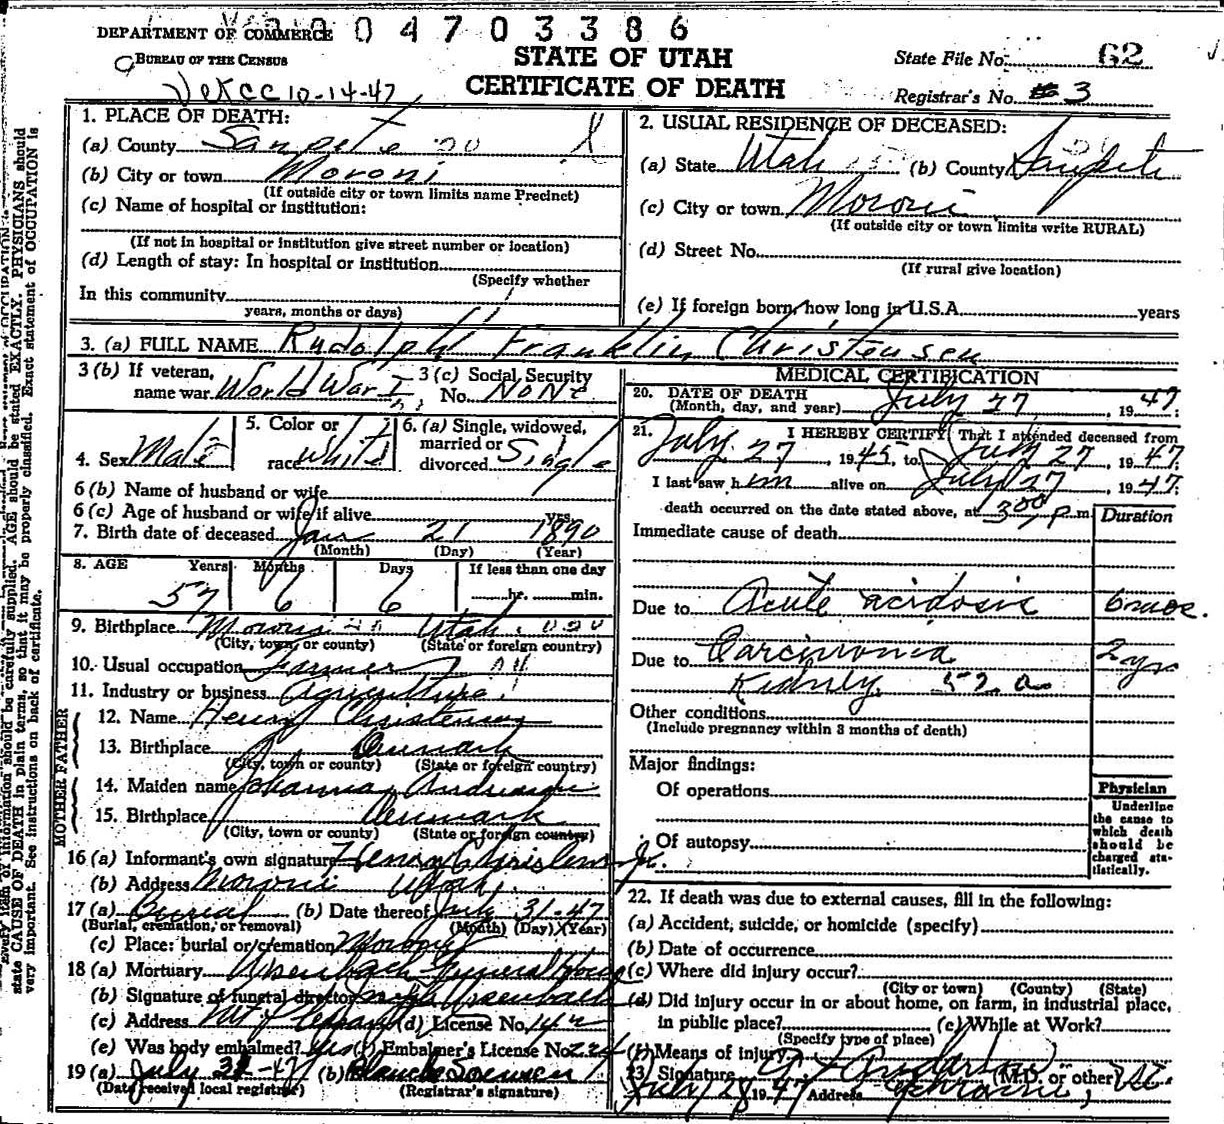 04703386
DEPARTMENT OF COMMERCE
BUREAU OF THE CENSUS
STATE OF UTAH
CERTIFICATE OF DEATH
State File No. 62
Registrar's No. #3
10-14-47
1. PLACE OF DEATH:
(a) County Sanpete
(b) City or town Moroni
(If outside city or town limits name Precinct)
(c) Name of hospital or institution:
(If not in hospital or institution give street number or location)
(d) Length of stay: In hospital or institution
(Specify whether
In this community
years, months or days)
2. USUAL RESIDENCE OF DECEASED:
(a) State Utah (b) County Sanpete
(c) City or town Moroni
(If outside city or town limits write RURAL)
(d) Street No.
(If rural give location)
(e) If foreign born, how long in U.S.A. years
3. (a) FULL NAME Rudolph Franklin Christensen
3 (b) If veteran,
name war World War I
3 (c) Social Security
No. None
4. Sex Male
5. Color or
race White
6. (a) Single, widowed,
married or
divorced Single
6 (b) Name of husband or wife
6 (c) Age of husband or wife if alive yrs.
7. Birth date of deceased Jan 21 1890
(Month) (Day) (Year)
8. AGE Years Months Days If less than one day
57 6 6 hr. min.
9. Birthplace Moroni Utah
(City, town, or county) (State or foreign country)
10. Usual occupation Farmer
11. Industry or business Agriculture
FATHER
12. Name Henry Christensen
13. Birthplace Denmark
(City, town or county) (State or foreign country)
MOTHER
14. Maiden name Johanna
15. Birthplace Denmark
(City, town or county) (State or foreign country)
16 (a) Informant's own signature Henry Christensen Jr.
(b) Address Moroni Utah
17 (a) Burial (b) Date thereof July 31-47
(Burial, cremation, or removal) (Month) (Day) (Year)
(c) Place: burial or cremation Moroni
18 (a) Mortuary Ursenbach Funeral Home
(b) Signature of funeral director Ursenbach
(c) Address Mt Pleasant (d) License No. 142
(e) Was body embalmed? Yes (f) Embalmer's License No. 224
19 (a) July -47 (b) Blanche Sorensen
(Date received local registrar) (Registrar's signature)
MEDICAL CERTIFICATION
20. DATE OF DEATH
(Month, day, and year) July 27, 1947.
21. I HEREBY CERTIFY, That I attended deceased from
July 27, 1945, to July 27, 1947;
I last saw him alive on July 27, 1947;
death occurred on the date stated above, at 3:00 p m
Duration
Immediate cause of death
Due to Acute acidosis 6 mos.
Due to Carcinoma 2 yrs
Kidney 52 a
Other conditions
(Include pregnancy within 3 months of death)
Major findings:
Of operations
Of autopsy
Physician
Underline
the cause to
which death
should be
charged sta-
tistically.
22. If death was due to external causes, fill in the following:
(a) Accident, suicide, or homicide (specify)
(b) Date of occurrence
(c) Where did injury occur?
(City or town) (County) (State)
(d) Did injury occur in or about home, on farm, in industrial place,
in public place? (e) While at Work?
(Specify type of place)
(f) Means of injury
23. Signature (M.D. or other)
July 28, 1947 Address
state CAUSE OF DEATH in plain terms, so that it may be properly classified. Exact statement of OCCUPATION is
very important. See instructions on back of certificate.